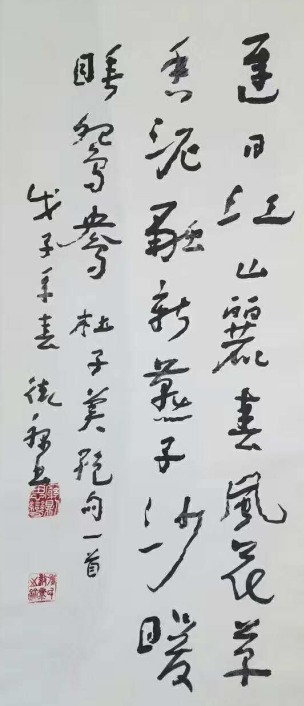 遲日江山麗春風花草
香泥融新燕子沙暖
睡鴛鴦 杜子美絕句一首
戊子年春 書